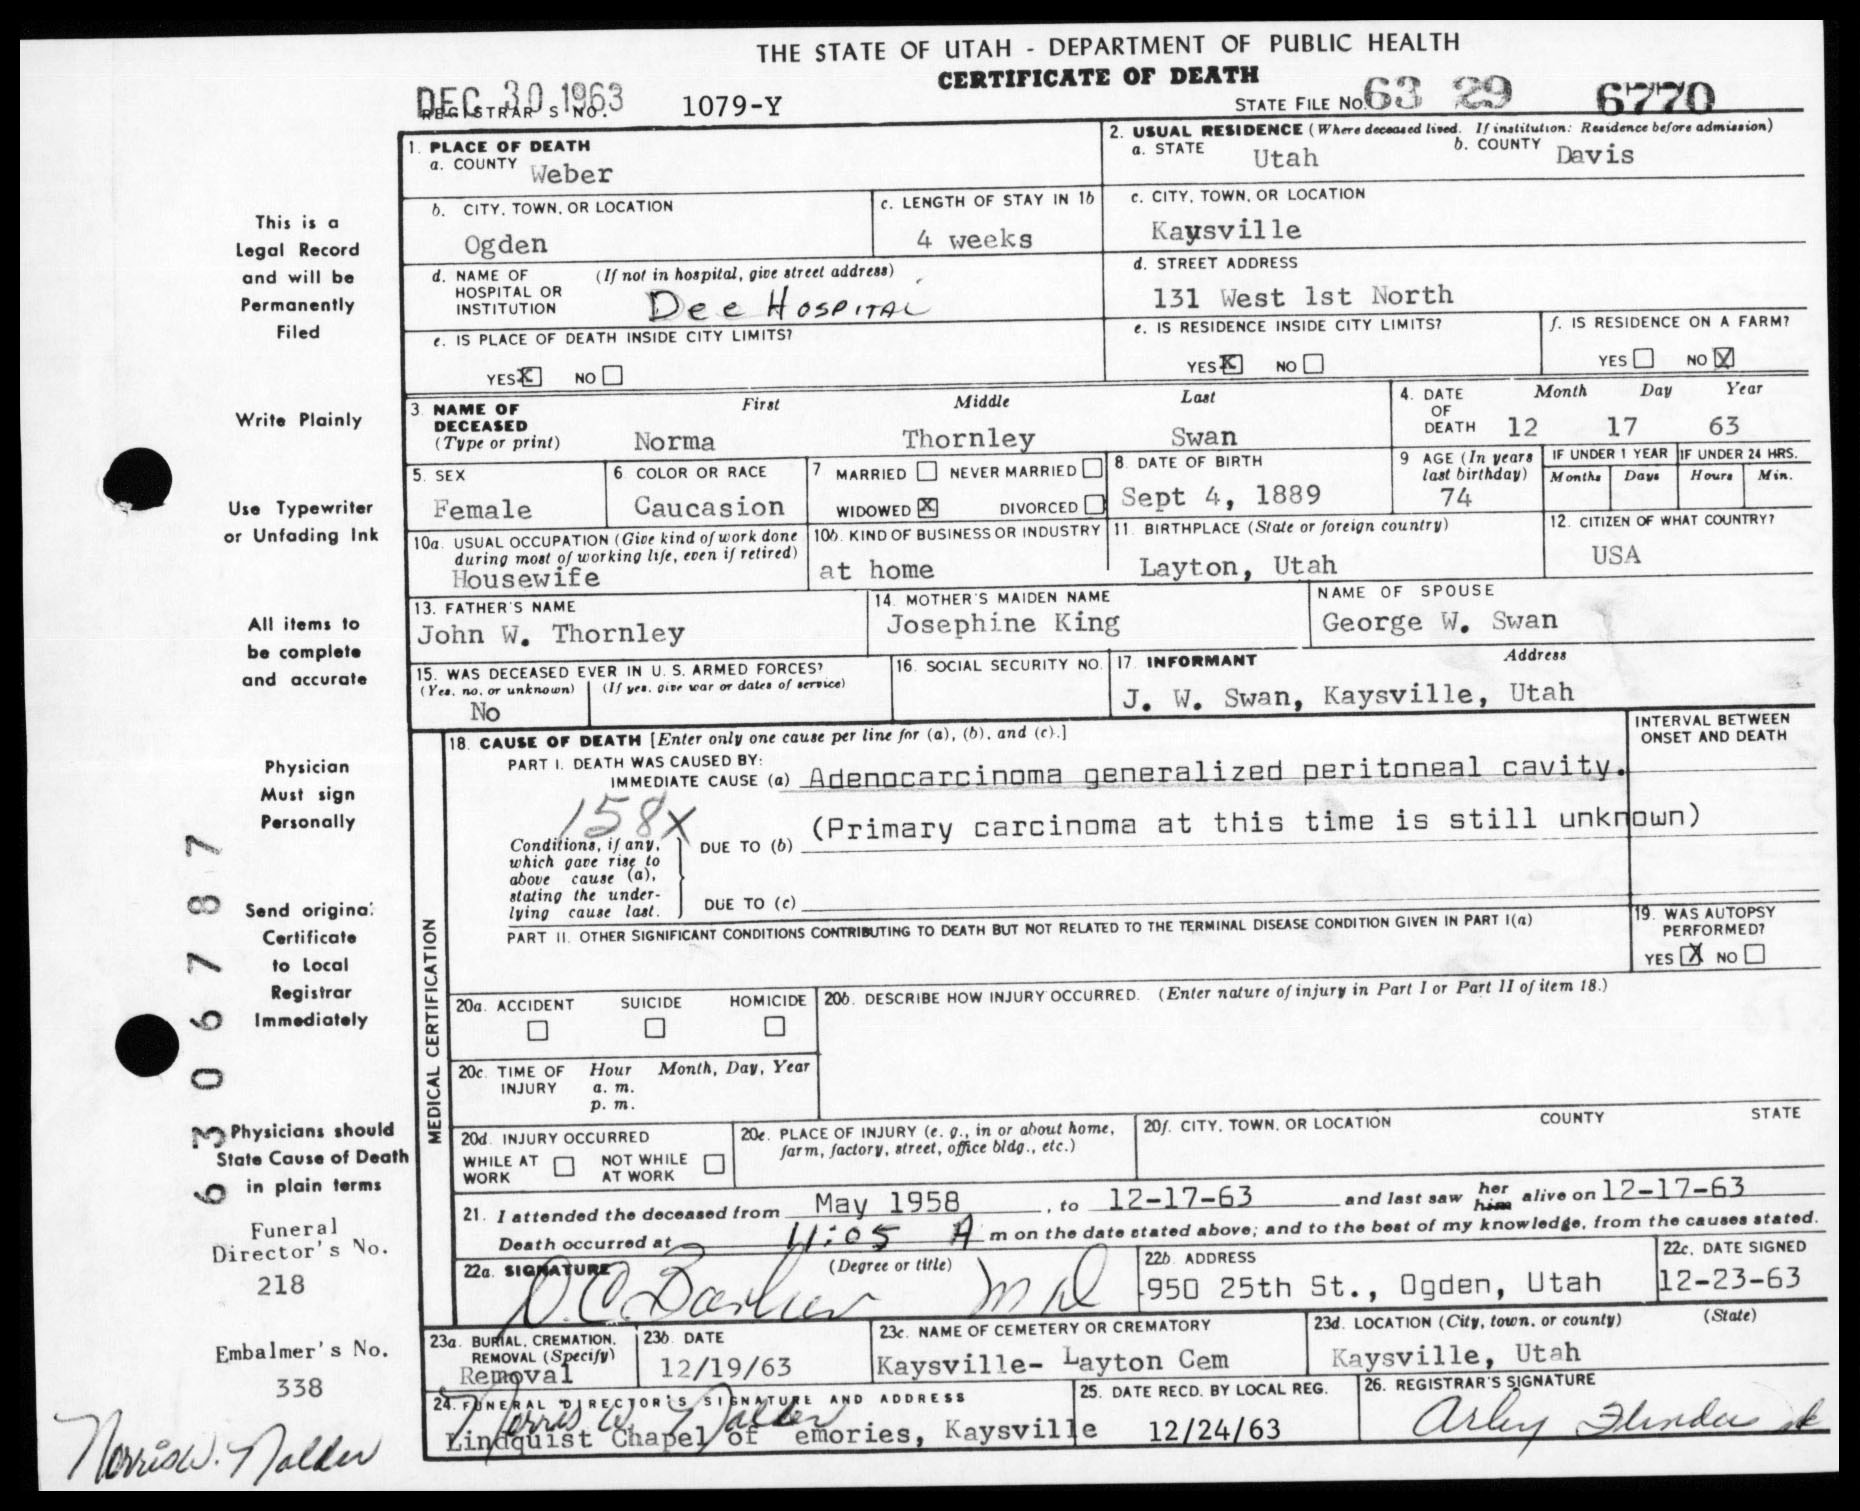 THE STATE OF UTAH - DEPARTMENT OF PUBLIC HEALTH
CERTIFICATE OF DEATH
DEC 30 1963
REGISTRAR'S NO. 1079-Y STATE FILE NO. 63 29 6770
1. PLACE OF DEATH
a. COUNTY Weber
2. USUAL RESIDENCE (Where deceased lived. If institution: Residence before admission)
a. STATE Utah b. COUNTY Davis
b. CITY, TOWN, OR LOCATION
Ogden
c. LENGTH OF STAY IN 1b
4 weeks
c. CITY, TOWN, OR LOCATION
Kaysville
d. NAME OF HOSPITAL OR INSTITUTION (If not in hospital, give street address)
Dee HOSPITAL
d. STREET ADDRESS
131 West 1st North
e. IS PLACE OF DEATH INSIDE CITY LIMITS?
YES X NO
e. IS RESIDENCE INSIDE CITY LIMITS?
YES X NO
f. IS RESIDENCE ON A FARM?
YES NO X
3. NAME OF DECEASED (Type or print)
First Middle Last
Norma Thornley Swan
4. DATE OF DEATH
Month Day Year
12 17 63
5. SEX
Female
6. COLOR OR RACE
Caucasion
7 MARRIED NEVER MARRIED
WIDOWED X DIVORCED
8. DATE OF BIRTH
Sept 4, 1889
9 AGE (In years last birthday)
74
IF UNDER 1 YEAR
Months Days
IF UNDER 24 HRS.
Hours Min.
10a. USUAL OCCUPATION (Give kind of work done during most of working life, even if retired)
Housewife
10b. KIND OF BUSINESS OR INDUSTRY
at home
11. BIRTHPLACE (State or foreign country)
Layton, Utah
12. CITIZEN OF WHAT COUNTRY?
USA
13. FATHER'S NAME
John W. Thornley
14. MOTHER'S MAIDEN NAME
Josephine King
NAME OF SPOUSE
George W. Swan
15. WAS DECEASED EVER IN U. S. ARMED FORCES?
(Yes, no, or unknown) (If yes, give war or dates of service)
No
16. SOCIAL SECURITY NO.
17. INFORMANT Address
J. W. Swan, Kaysville, Utah
MEDICAL CERTIFICATION
18. CAUSE OF DEATH [Enter only one cause per line for (a), (b), and (c).]
INTERVAL BETWEEN ONSET AND DEATH
PART I. DEATH WAS CAUSED BY:
IMMEDIATE CAUSE (a) Adenocarcinoma generalized peritoneal cavity.
158X
Conditions, if any, which gave rise to above cause (a), stating the underlying cause last.
DUE TO (b) (Primary carcinoma at this time is still unknown)
DUE TO (c)
PART II. OTHER SIGNIFICANT CONDITIONS CONTRIBUTING TO DEATH BUT NOT RELATED TO THE TERMINAL DISEASE CONDITION GIVEN IN PART I(a)
19. WAS AUTOPSY PERFORMED?
YES X NO
20a. ACCIDENT SUICIDE HOMICIDE
20b. DESCRIBE HOW INJURY OCCURRED. (Enter nature of injury in Part I or Part II of item 18.)
20c. TIME OF INJURY
Hour Month, Day, Year
a. m.
p. m.
20d. INJURY OCCURRED
WHILE AT WORK NOT WHILE AT WORK
20e. PLACE OF INJURY (e. g., in or about home, farm, factory, street, office bldg., etc.)
20f. CITY, TOWN, OR LOCATION COUNTY STATE
21. I attended the deceased from May 1958, to 12-17-63 and last saw her him alive on 12-17-63
Death occurred at 11:05 A m on the date stated above; and to the best of my knowledge, from the causes stated.
22a. SIGNATURE (Degree or title)
D.C. Barker MD
22b. ADDRESS
950 25th St., Ogden, Utah
22c. DATE SIGNED
12-23-63
23a. BURIAL, CREMATION, REMOVAL (Specify)
Removal
23b. DATE
12/19/63
23c. NAME OF CEMETERY OR CREMATORY
Kaysville- Layton Cem
23d. LOCATION (City, town, or county) (State)
Kaysville, Utah
24. FUNERAL DIRECTOR'S SIGNATURE AND ADDRESS
Norris W. Nalder
Lindquist Chapel of emories, Kaysville
25. DATE RECD. BY LOCAL REG.
12/24/63
26. REGISTRAR'S SIGNATURE
Arley Flinders
This is a
Legal Record
and will be
Permanently
Filed
Write Plainly
Use Typewriter
or Unfading Ink
All items to
be complete
and accurate
Physician
Must sign
Personally
Send original
Certificate
to Local
Registrar
Immediately
Physicians should
State Cause of Death
in plain terms
63 067787
Funeral
Director's No.
218
Embalmer's No.
338
Norris W. Nalder